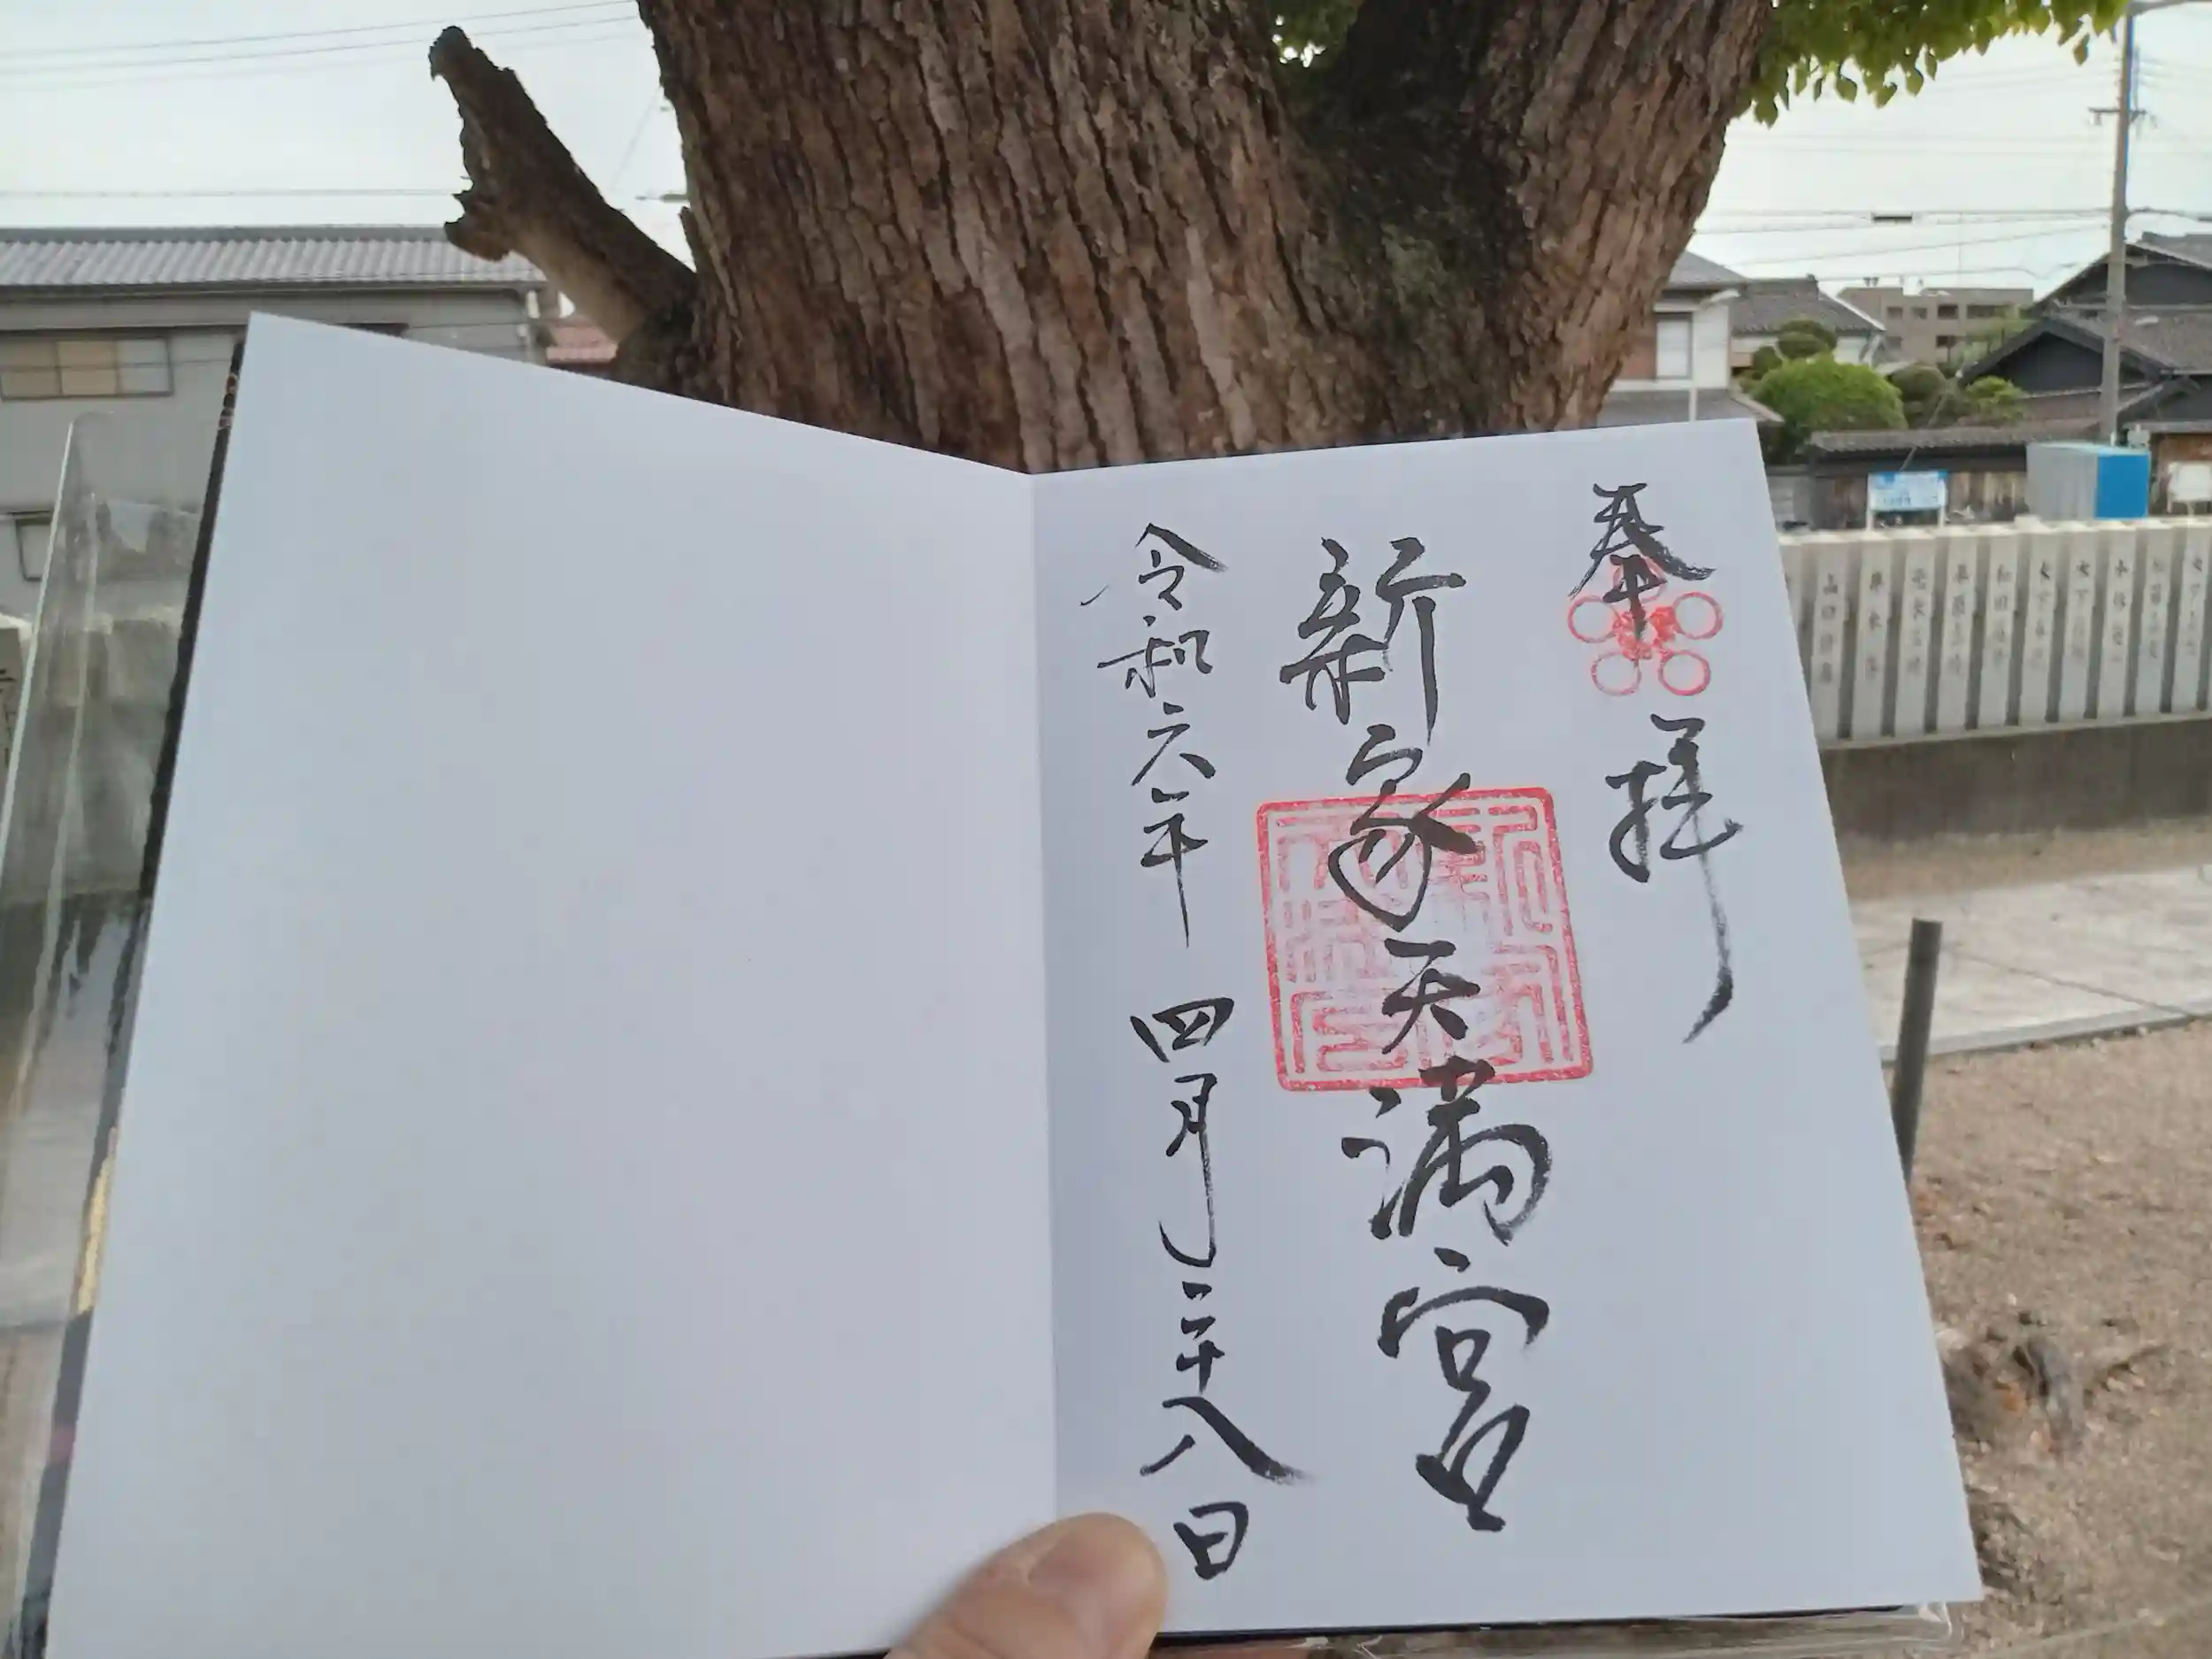 奉拝
新家天満宮
令和六年 四月二十八日